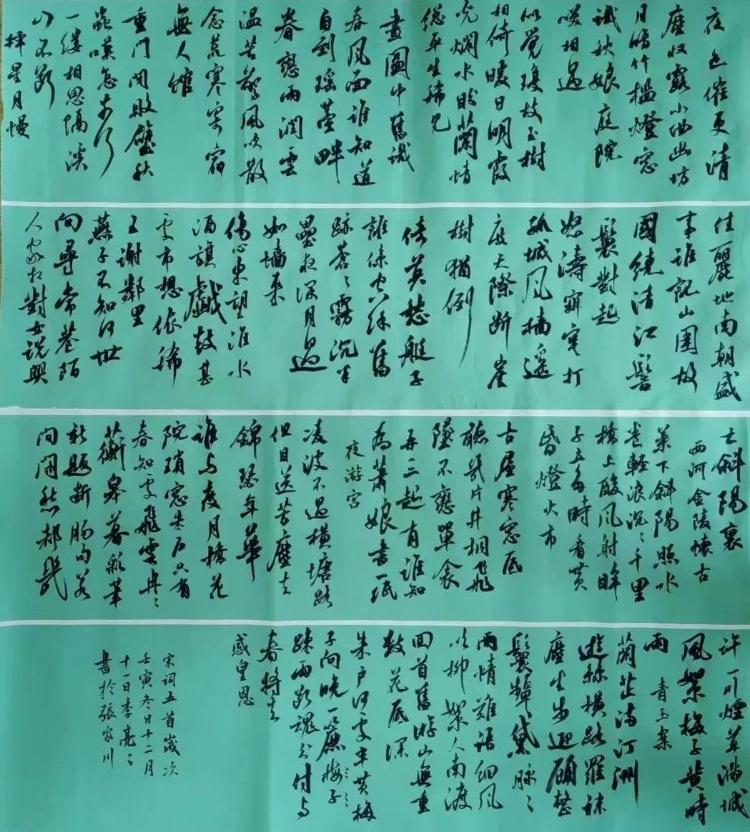 夜色催更清
塵收露小曲幽坊
月暗竹檻燈窗
識秋娘庭院
笑相遇
似覺瓊枝玉樹
相倚暖日明霞
光爛水盼蘭情
總平生稀見
畫圖中舊識
春風面誰知道
自到瑤臺畔
眷戀雨潤雲
溫苦驚風吹散
念荒寒寄宿
無人館
重門閉敗壁秋
蟲嘆怎奈何
一縷相思隔溪
山不斷
拜星月慢
佳麗地南朝盛
事誰記山圍故
國繞清江髻
鬟對起
怒濤寂寞打
孤城風檣遙
度天際斷崖
樹猶倒
倚莫愁艇子
誰繫空餘舊
跡蒼蒼霧沉半
壘夜深月過
如墻來
傷心東望淮水
酒旗戲鼓甚
處市想依稀
王謝鄰里
燕子不知何世
向尋常巷陌
人家相對女説興
亡斜陽裏
西河金陵懷古
葉下斜陽照水
卷輕浪沉沉千里
橋上酸風射眸
子立多時看黃
昏燈火市
古屋寒窗底
聽幾片井桐飛
墜不戀單衾
再三起有誰知
為蕭娘書一紙
夜游宮
凌波不過橫塘路
但目送芳塵去
錦瑟年華
誰與度月橋花
院瑣窗朱戶只有
春知處飛雲冉冉
蘅皋暮彩筆
新題斷腸句若
問閒愁都幾
許一川煙草滿城
風絮梅子黃時
雨 青玉案
蘭芷滿汀洲
遊絲橫路羅襪
塵生步迎顧整
鬟顰黛脈脈
兩情難語細風
吹柳絮人南渡
回首舊游山無重
數花底深
朱戶何處半黃梅
子向晚一簾梅子
疎雨斷魂分付與
春將去
感皇恩
宋词五首歲次
壬寅冬日十二月
十一日李亮亮
書於張家川